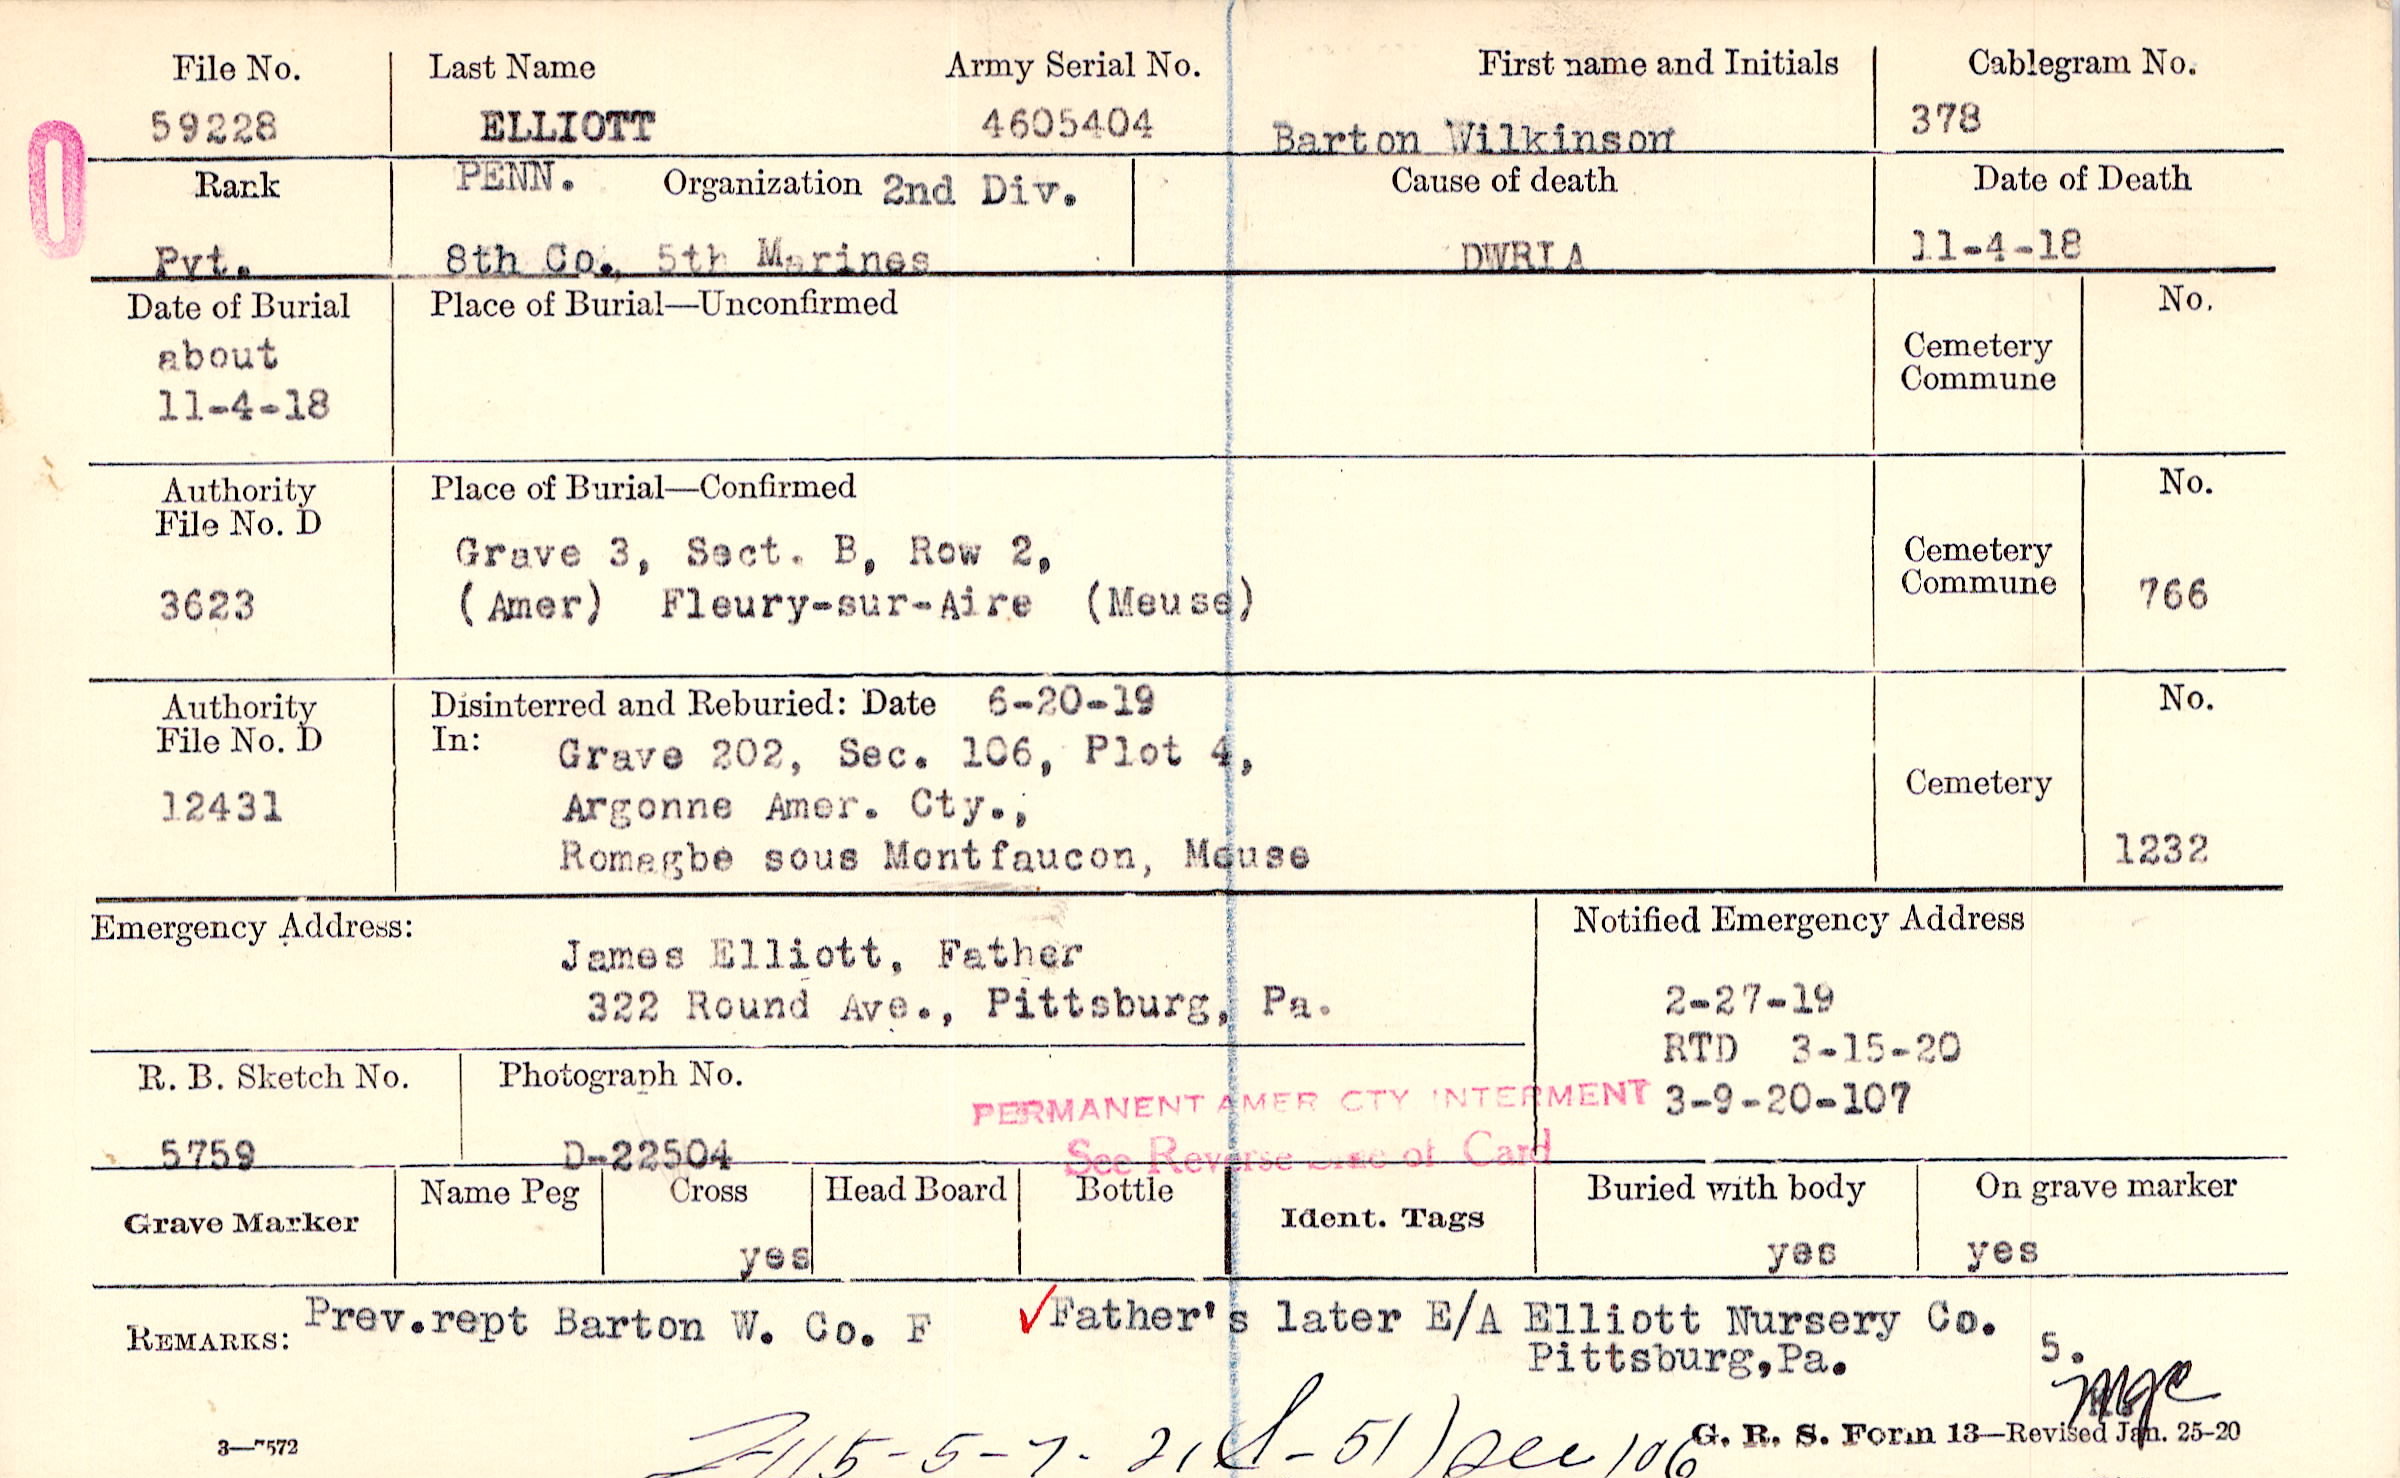 File No. Last Name Army Serial No. First name and Initials Cablegram No.
59228 ELLIOTT 4605404 Barton Wilkinson 378
Rank PENN. Organization 2nd Div. Cause of death Date of Death
Pvt. 8th Co., 5th Marines DWRIA 11-4-18
Date of Burial Place of Burial—Unconfirmed No.
about
11-4-18
Cemetery
Commune
Authority Place of Burial—Confirmed No.
File No. D
Grave 3, Sect. B, Row 2, Cemetery
3623 (Amer) Fleury-sur-Aire (Meuse) Commune 766
Authority Disinterred and Reburied: Date 6-20-19 No.
File No. D In: Grave 202, Sec. 106, Plot 4,
12431 Argonne Amer. Cty., Cemetery
Romagbe sous Montfaucon, Meuse 1232
Emergency Address: Notified Emergency Address
James Elliott, Father
322 Round Ave., Pittsburg, Pa. 2-27-19
RTD 3-15-20
R. B. Sketch No. Photograph No. 3-9-20-107
PERMANENT AMER CTY INTERMENT
5759 D-22504 See Reverse Side of Card
Grave Marker Name Peg Cross Head Board Bottle Ident. Tags Buried with body On grave marker
yes yes yes
REMARKS: Prev.rept Barton W. Co. F ✓Father's later E/A Elliott Nursery Co.
Pittsburg,Pa. 5.
3—7572 G. R. S. Form 13—Revised Jan. 25-20